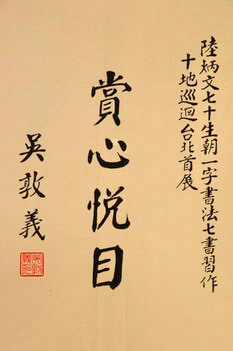 陸炳文七十生朝一字書法七書習作
十地巡迴台北首展
賞心悅目
吳敦義